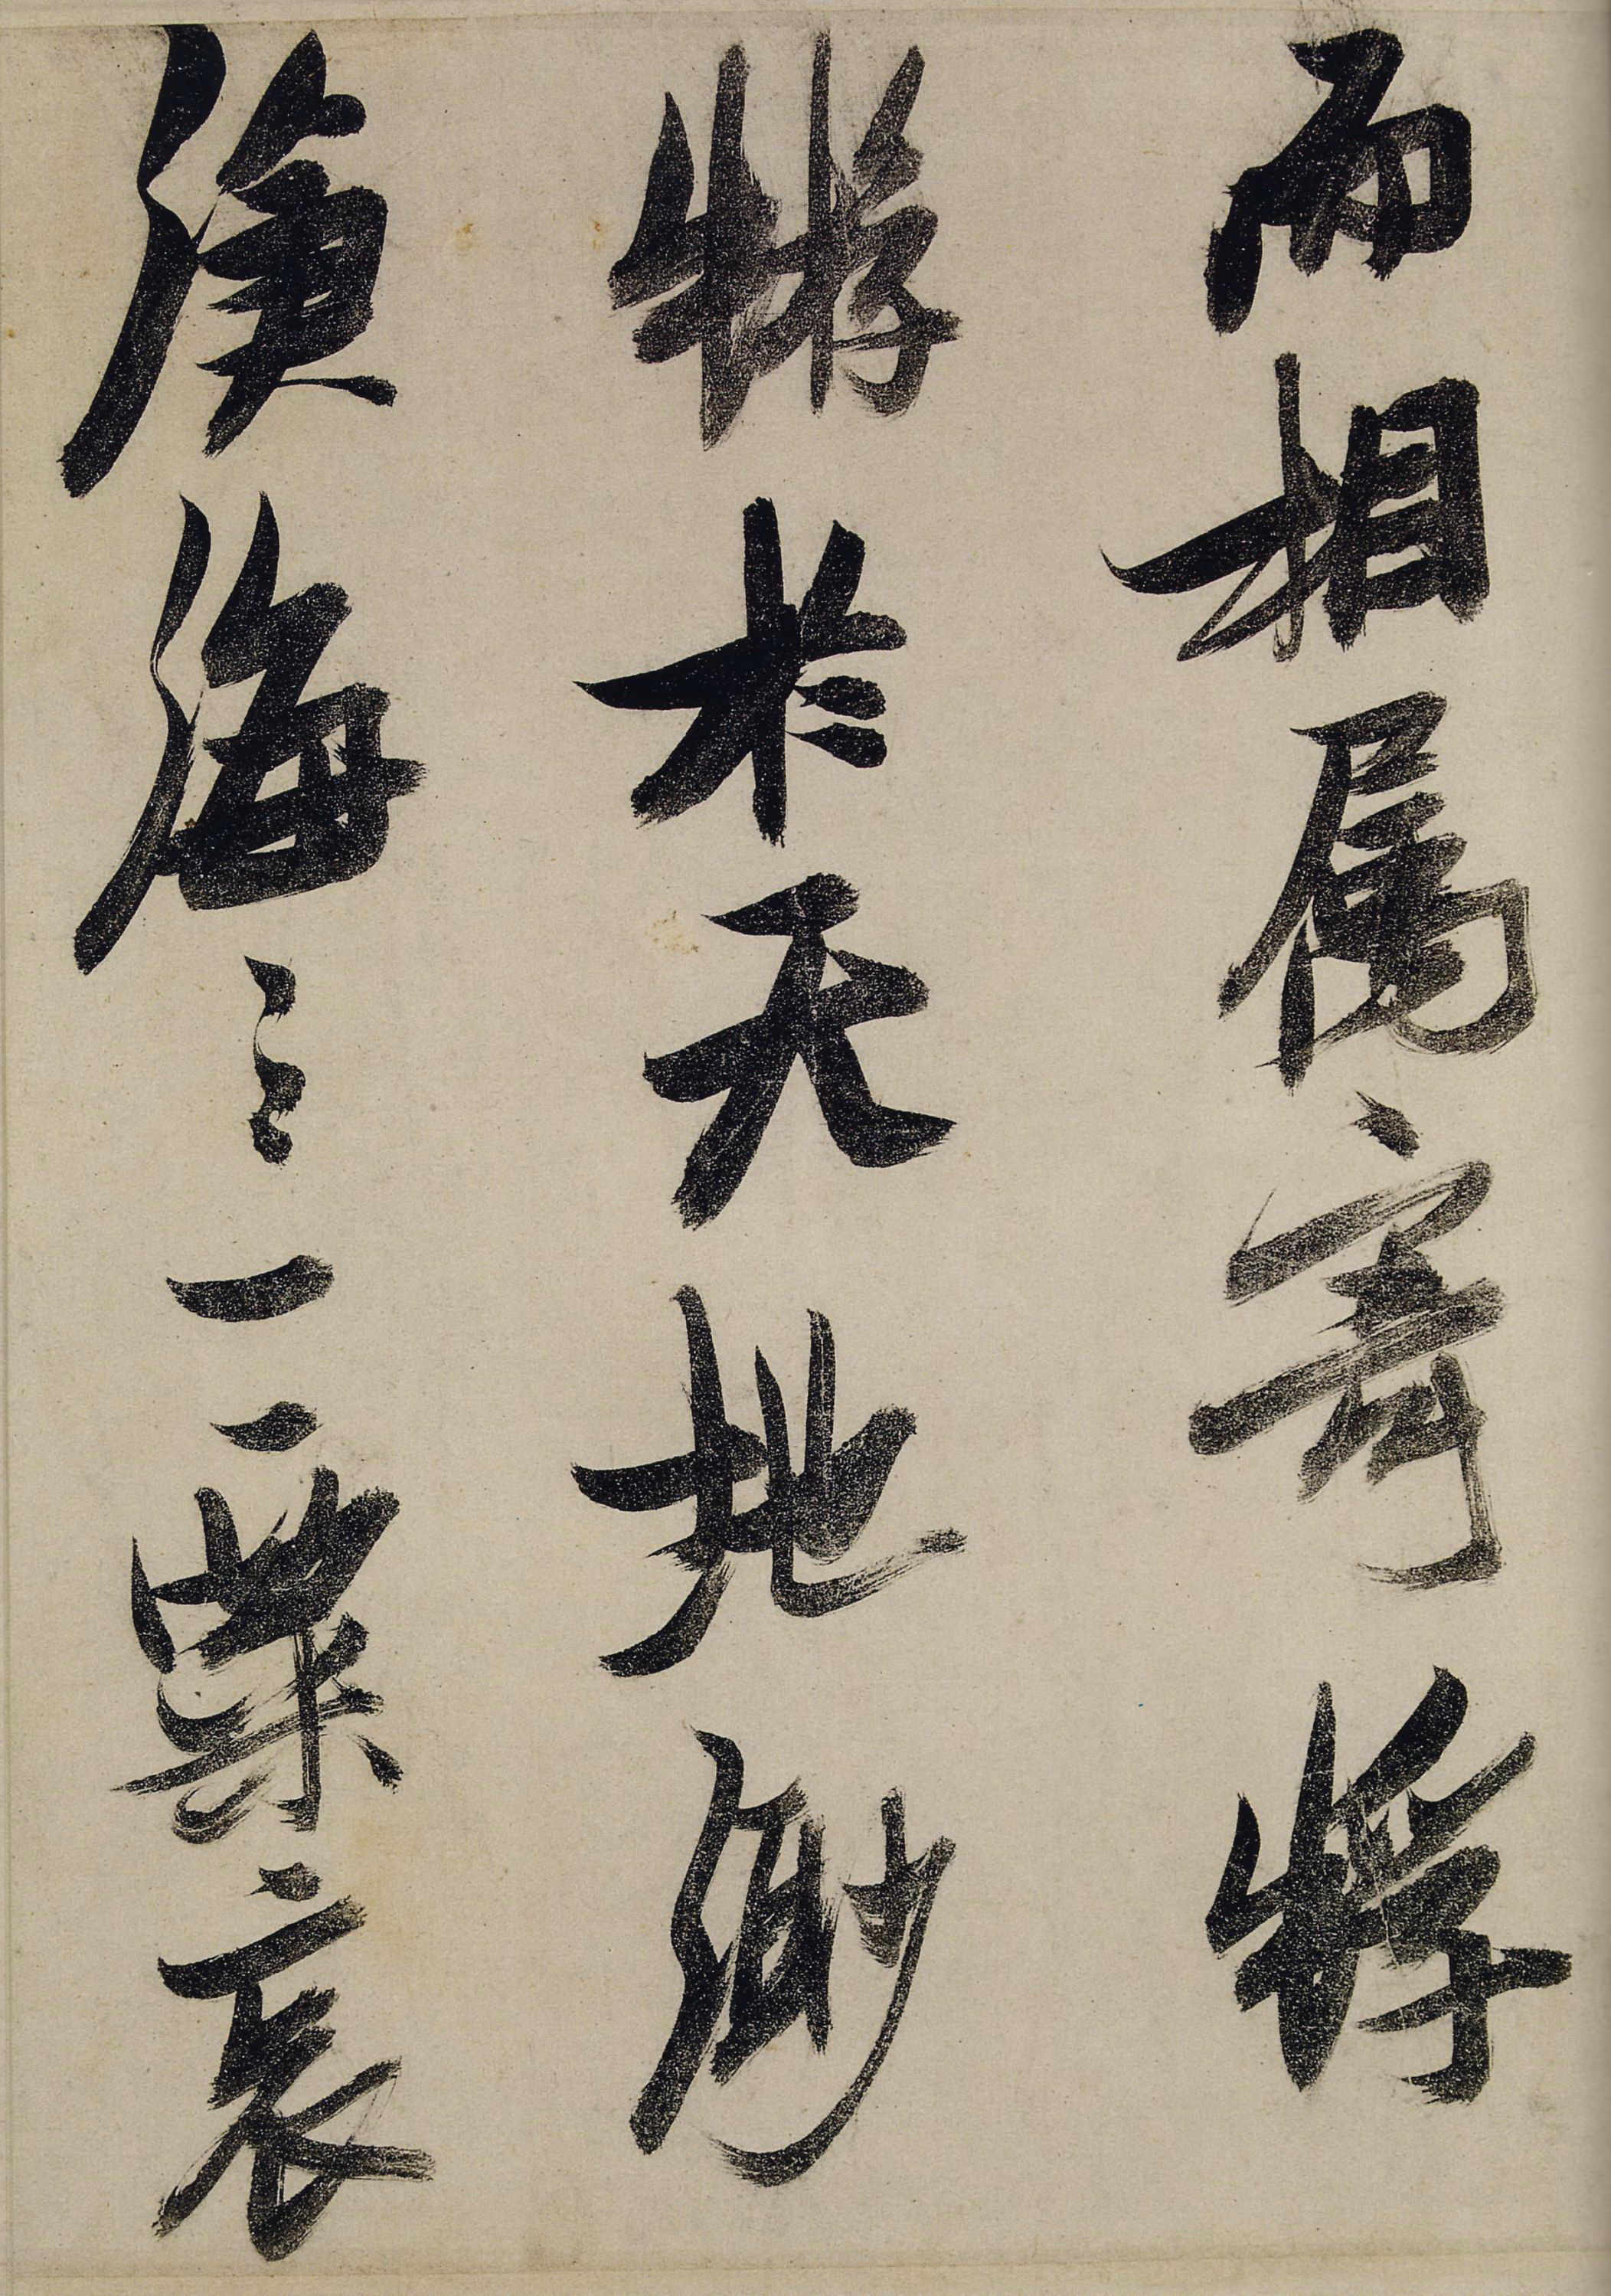 而相属寄蜉
蝣於天地渺
滄海之一粟哀